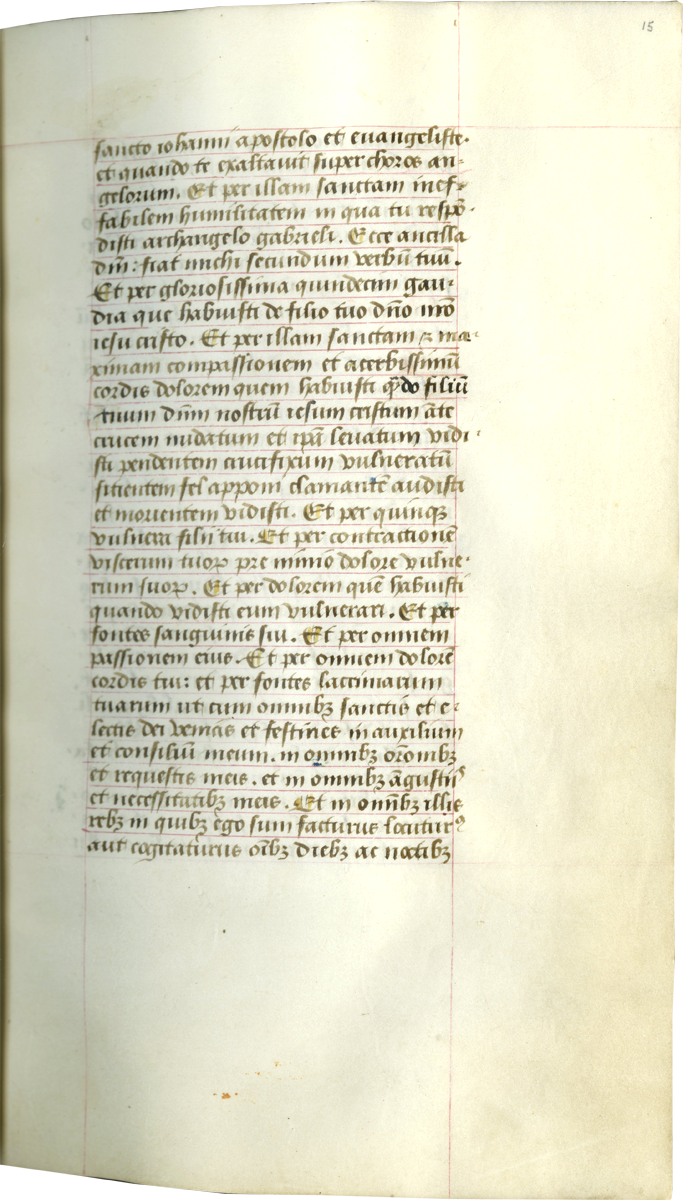 15
sancto iohanni apostolo et euangeliste.
et quando te exaltauit super choros an-
gelorum. Et per illam sanctam inef-
fabilem humilitatem in qua tu respō-
disti archangelo gabrieli. Ecce ancilla
dn̄i: fiat michi secundum verbū tuū.
Et per gloriosissima quindecim gau-
dia que habuisti de filio tuo dn̄o nr̄o
iesu cristo. Et per illam sanctam ⁊ ma-
ximam compassionem et acerbissimū
cordis dolorem quem habuisti qn̄do filiū
tuum dn̄m nostrū iesum cristum āte
crucem nudatum et ip̄ā leuatum vidi-
sti pendentem crucifixum vulneratū
sitientem fel apponi clamantē audisti
et morientem vidisti. Et per quinqꝫ
vulnera filii tui. Et per contractionē
viscerum tuoꝝ pre nimio dolore vulne-
rum suoꝝ. Et per dolorem quē habuisti
quando vidisti eum vulnerari. Et per
fontes sanguinis sui. Et per omnem
passionem eius. Et per omnem dolorē
cordis tui: et per fontes lacrimarum
tuarum ut cum omnibꝫ sanctis et e-
lectis dei venias et festines in auxilium
et consiliū meum. in omnibꝫ orōnibꝫ
et requestis meis. et in omnibꝫ āgustiis
et necessitatibꝫ meis. Et in omībꝫ illis
rebꝫ in quibꝫ ego sum facturus locuturꝰ
aut cogitaturus oībꝫ diebꝫ ac noctibꝫ